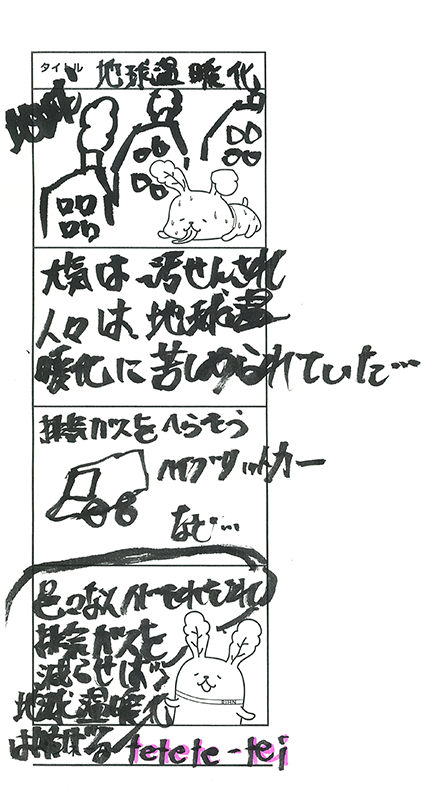 タイトル 地球温暖化
大気は汚せんされ
人々は、地球温
暖化に苦しめられていた…
排気ガスをへらそう
ハイブリットカー
など…
色々な人が それぞれ
排気ガスを
減らせば
地球温暖化
は
RIHN
tetete-tei